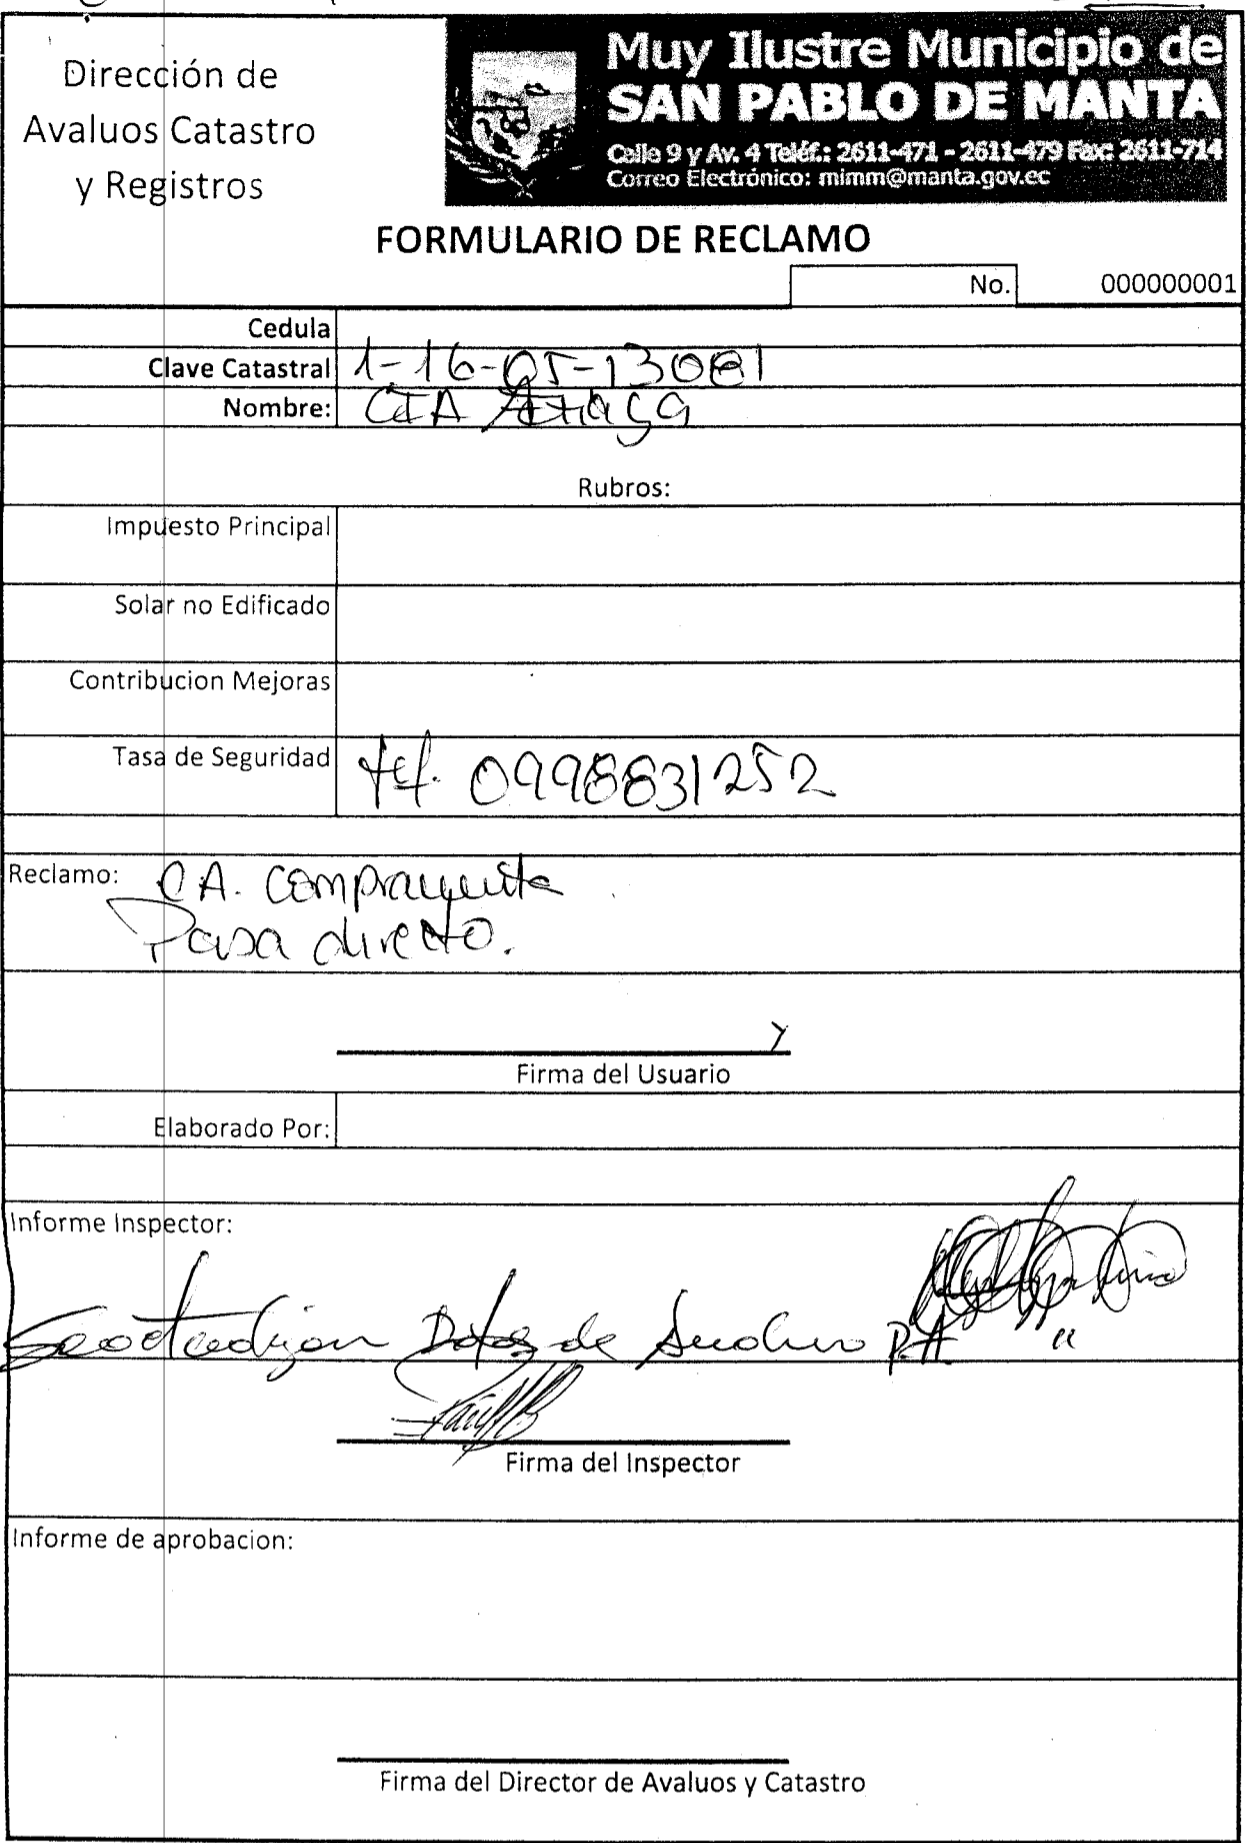 Dirección de
Avaluos Catastro
y Registros
Muy Ilustre Municipio de
SAN PABLO DE MANTA
Calle 9 y Av. 4 Teléf.: 2611-471 - 2611-479 Fax: 2611-714
Correo Electrónico: mimm@manta.gov.ec
FORMULARIO DE RECLAMO
No. 000000001
Cedula
Clave Catastral 1-16-05-13081
Nombre: CIA
Rubros:
Impuesto Principal
Solar no Edificado
Contribucion Mejoras
Tasa de Seguridad telf. 0998831252
Reclamo: C.A. compraventa
Pasa directo.
Firma del Usuario
Elaborado Por:
Informe Inspector:
Datos de
Firma del Inspector
Informe de aprobacion:
Firma del Director de Avaluos y Catastro